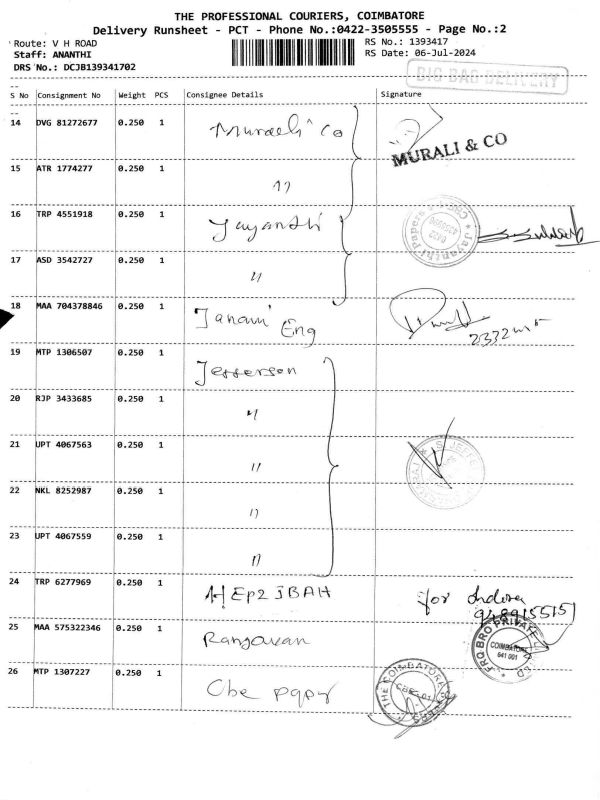 THE PROFESSIONAL COURIERS, COIMBATORE
Delivery Runsheet - PCT - Phone No.:0422-3505555 - Page No.:2
Route: V H ROAD
RS No.: 1393417
Staff: ANANTHI
RS Date: 06-Jul-2024
DRS No.: DCJB139341702
BIG BAG DELIVERY
S No Consignment No Weight PCS Consignee Details Signature
14 DVG 81272677 0.250 1 Murali Co
MURALI & CO
15 ATR 1774277 0.250 1 11
16 TRP 4551918 0.250 1 Jayanthi
Jayanthi Papers
17 ASD 3542727 0.250 1 "
18 MAA 704378846 0.250 1 Janani Eng
19 MTP 1306507 0.250 1 Jefferson
20 RJP 3433685 0.250 1 "
21 UPT 4067563 0.250 1 "
22 NKL 8252987 0.250 1 "
23 UPT 4067559 0.250 1 "
24 TRP 6277969 0.250 1
for
25 MAA 575322346 0.250 1
COIMBATORE
641 001
26 MTP 1307227 0.250 1 Cbe
THE COIMBATORE